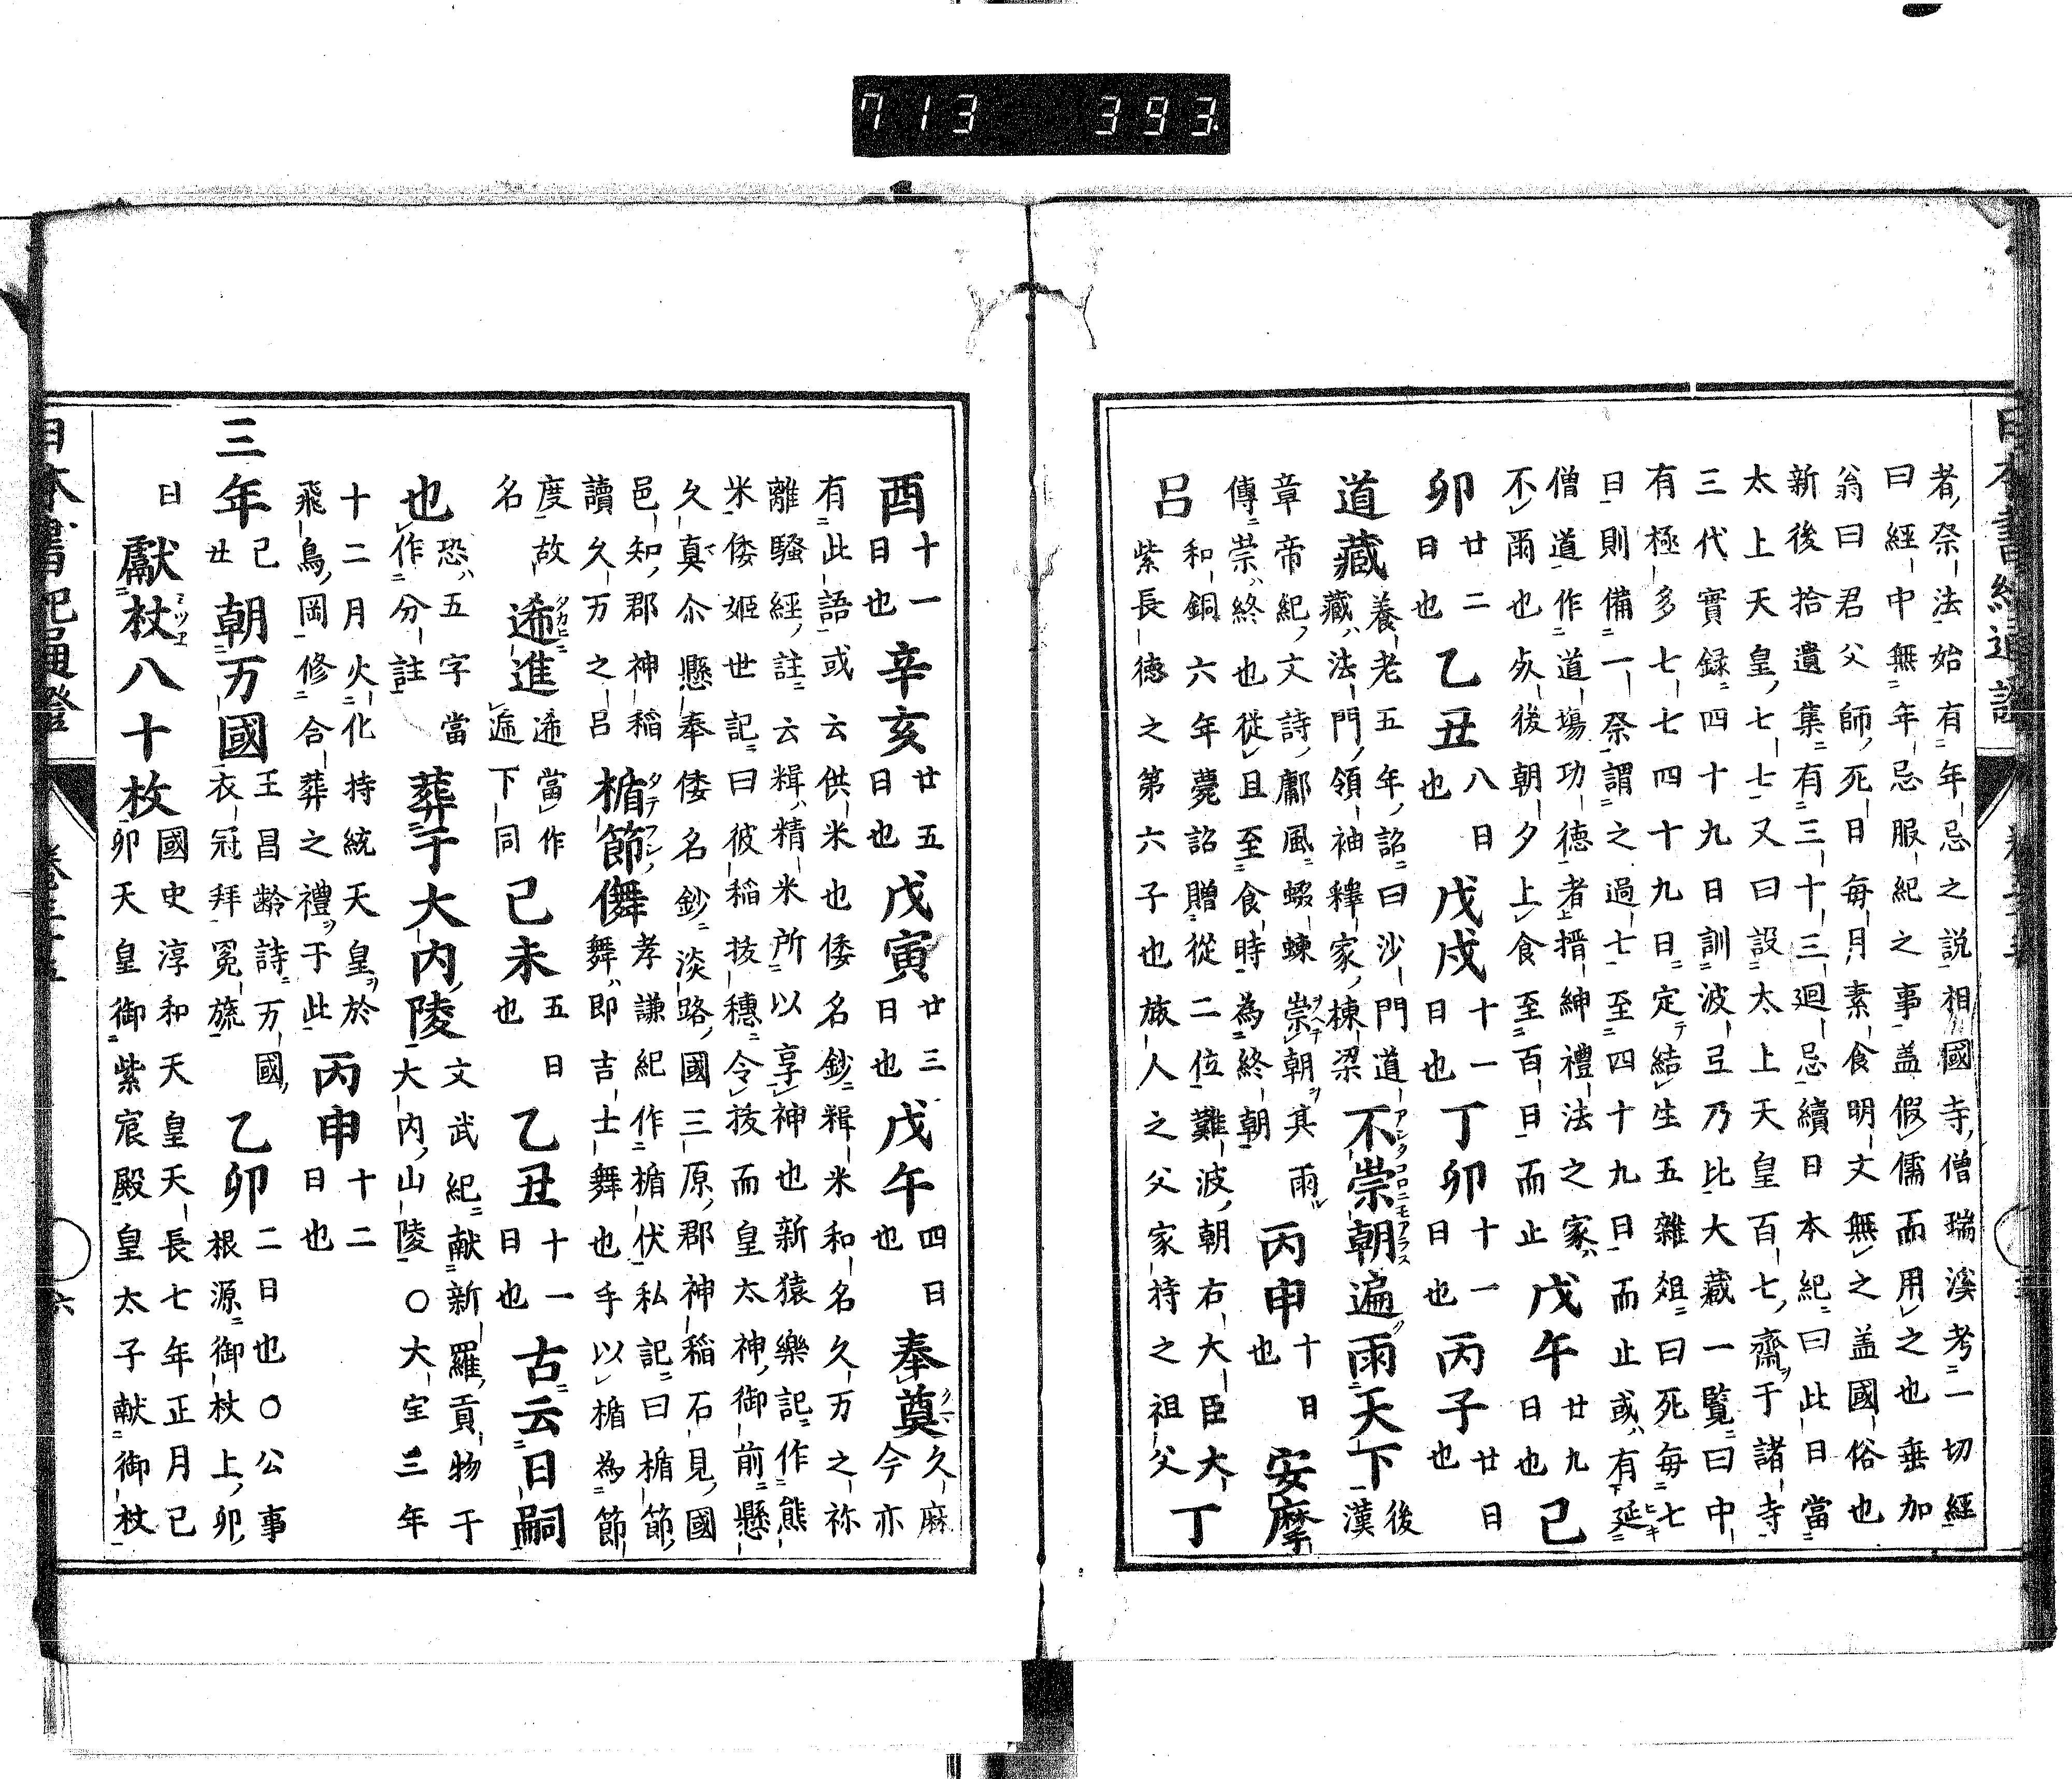 日本書紀通證
者祭法始有年忌之説相國寺僧瑞溪考一切經
曰經中無年忌服紀之事盖假儒而用之也垂加
翁曰君父師死日毎月素食明文無之盖國俗也
新後拾遺集有三十三迴忌續日本紀曰此日當
太上天皇七七又曰設太上天皇百七齋于諸寺
三代實録四十九日訓波弖乃比大藏一覧曰中
有極多七七四十九日定結生五雜爼曰死毎七
日則備一祭謂之過七至四十九日而止或有延
僧道作道塲功徳者搢紳禮法之家
不爾也後朝夕上食至百日而止
戊午廿九日也己
卯廿二日也乙丑八日也戊戌十一日也丁卯十一日也丙子廿日也
道藏養老五年詔曰沙門道藏法門領袖釋家棟梁不崇朝遍雨天下後漢
章帝紀文詩鄘風蝃蝀崇朝其雨
傳崇終也從且至食時為終朝
丙申十日也安摩
呂和銅六年薨詔贈從二位難波朝右大臣大
紫長徳之第六子也旅人之父家持之祖父
丁
酉十一日也辛亥廿五日也戊寅廿三日也戊午四日也奉奠久麻今亦
有此語或云供米也倭名鈔糈米和名久万之祢
離騷經註云糈精米所以享神也新猿樂記作熊
米倭姫世記曰彼稲抜穗令抜而皇太神御前懸
久真尒懸奉倭名鈔淡路國三原郡神稲石見國
邑知郡神稲
讀久万之呂
楯節儛孝謙紀作楯伏私記曰楯節
舞即吉士舞也手以楯為節
度故
名
遞進遞當作遞下同己未五日也乙丑十一日也古云日嗣
也恐五字當作分註葬于大内陵文武紀献新羅貢物于大内山陵〇大宝三年
十二月火化持統天皇於
飛鳥岡修合葬之禮于此
丙申十二日也
三年己丑朝万國王昌齡詩万國衣冠拜冕旒乙卯二日也〇公事根源御杖上卯
日
獻杖八十枚國史淳和天皇天長七年正月己卯天皇御紫宸殿皇太子献御杖
日本書紀通證
六
713 393